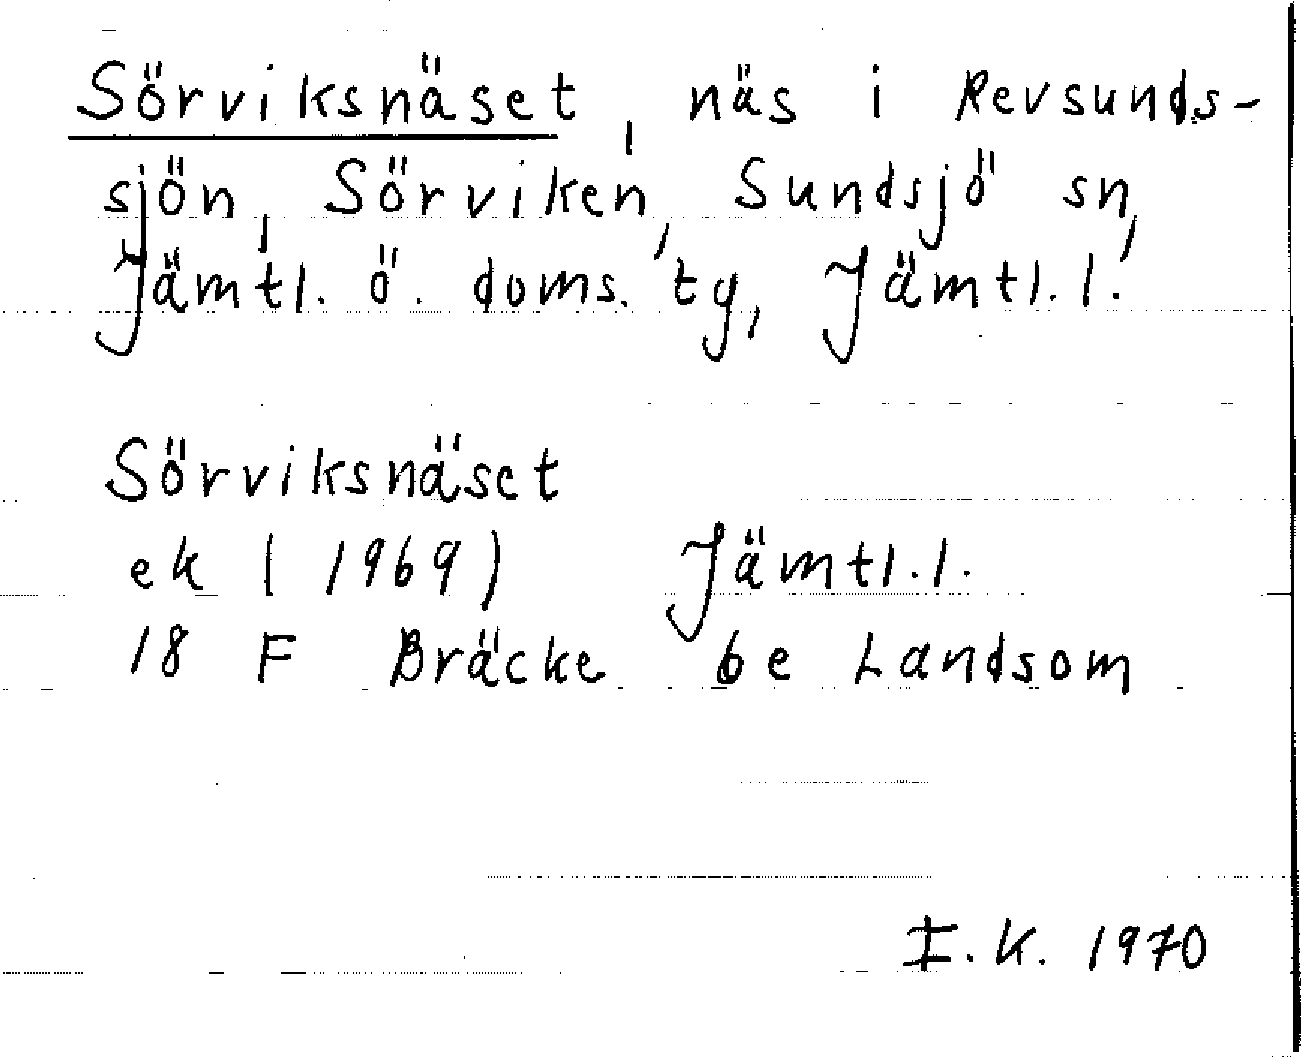 Sörviksnäset, näs i Revsunds-
sjön, Sörviken, Sundsjö sn,
Jämtl. ö. doms. tg, Jämtl. l.
Sörviksnäset
ek (1969) Jämtl. l.
18 F Bräcke 6e Landsom
I.K. 1970